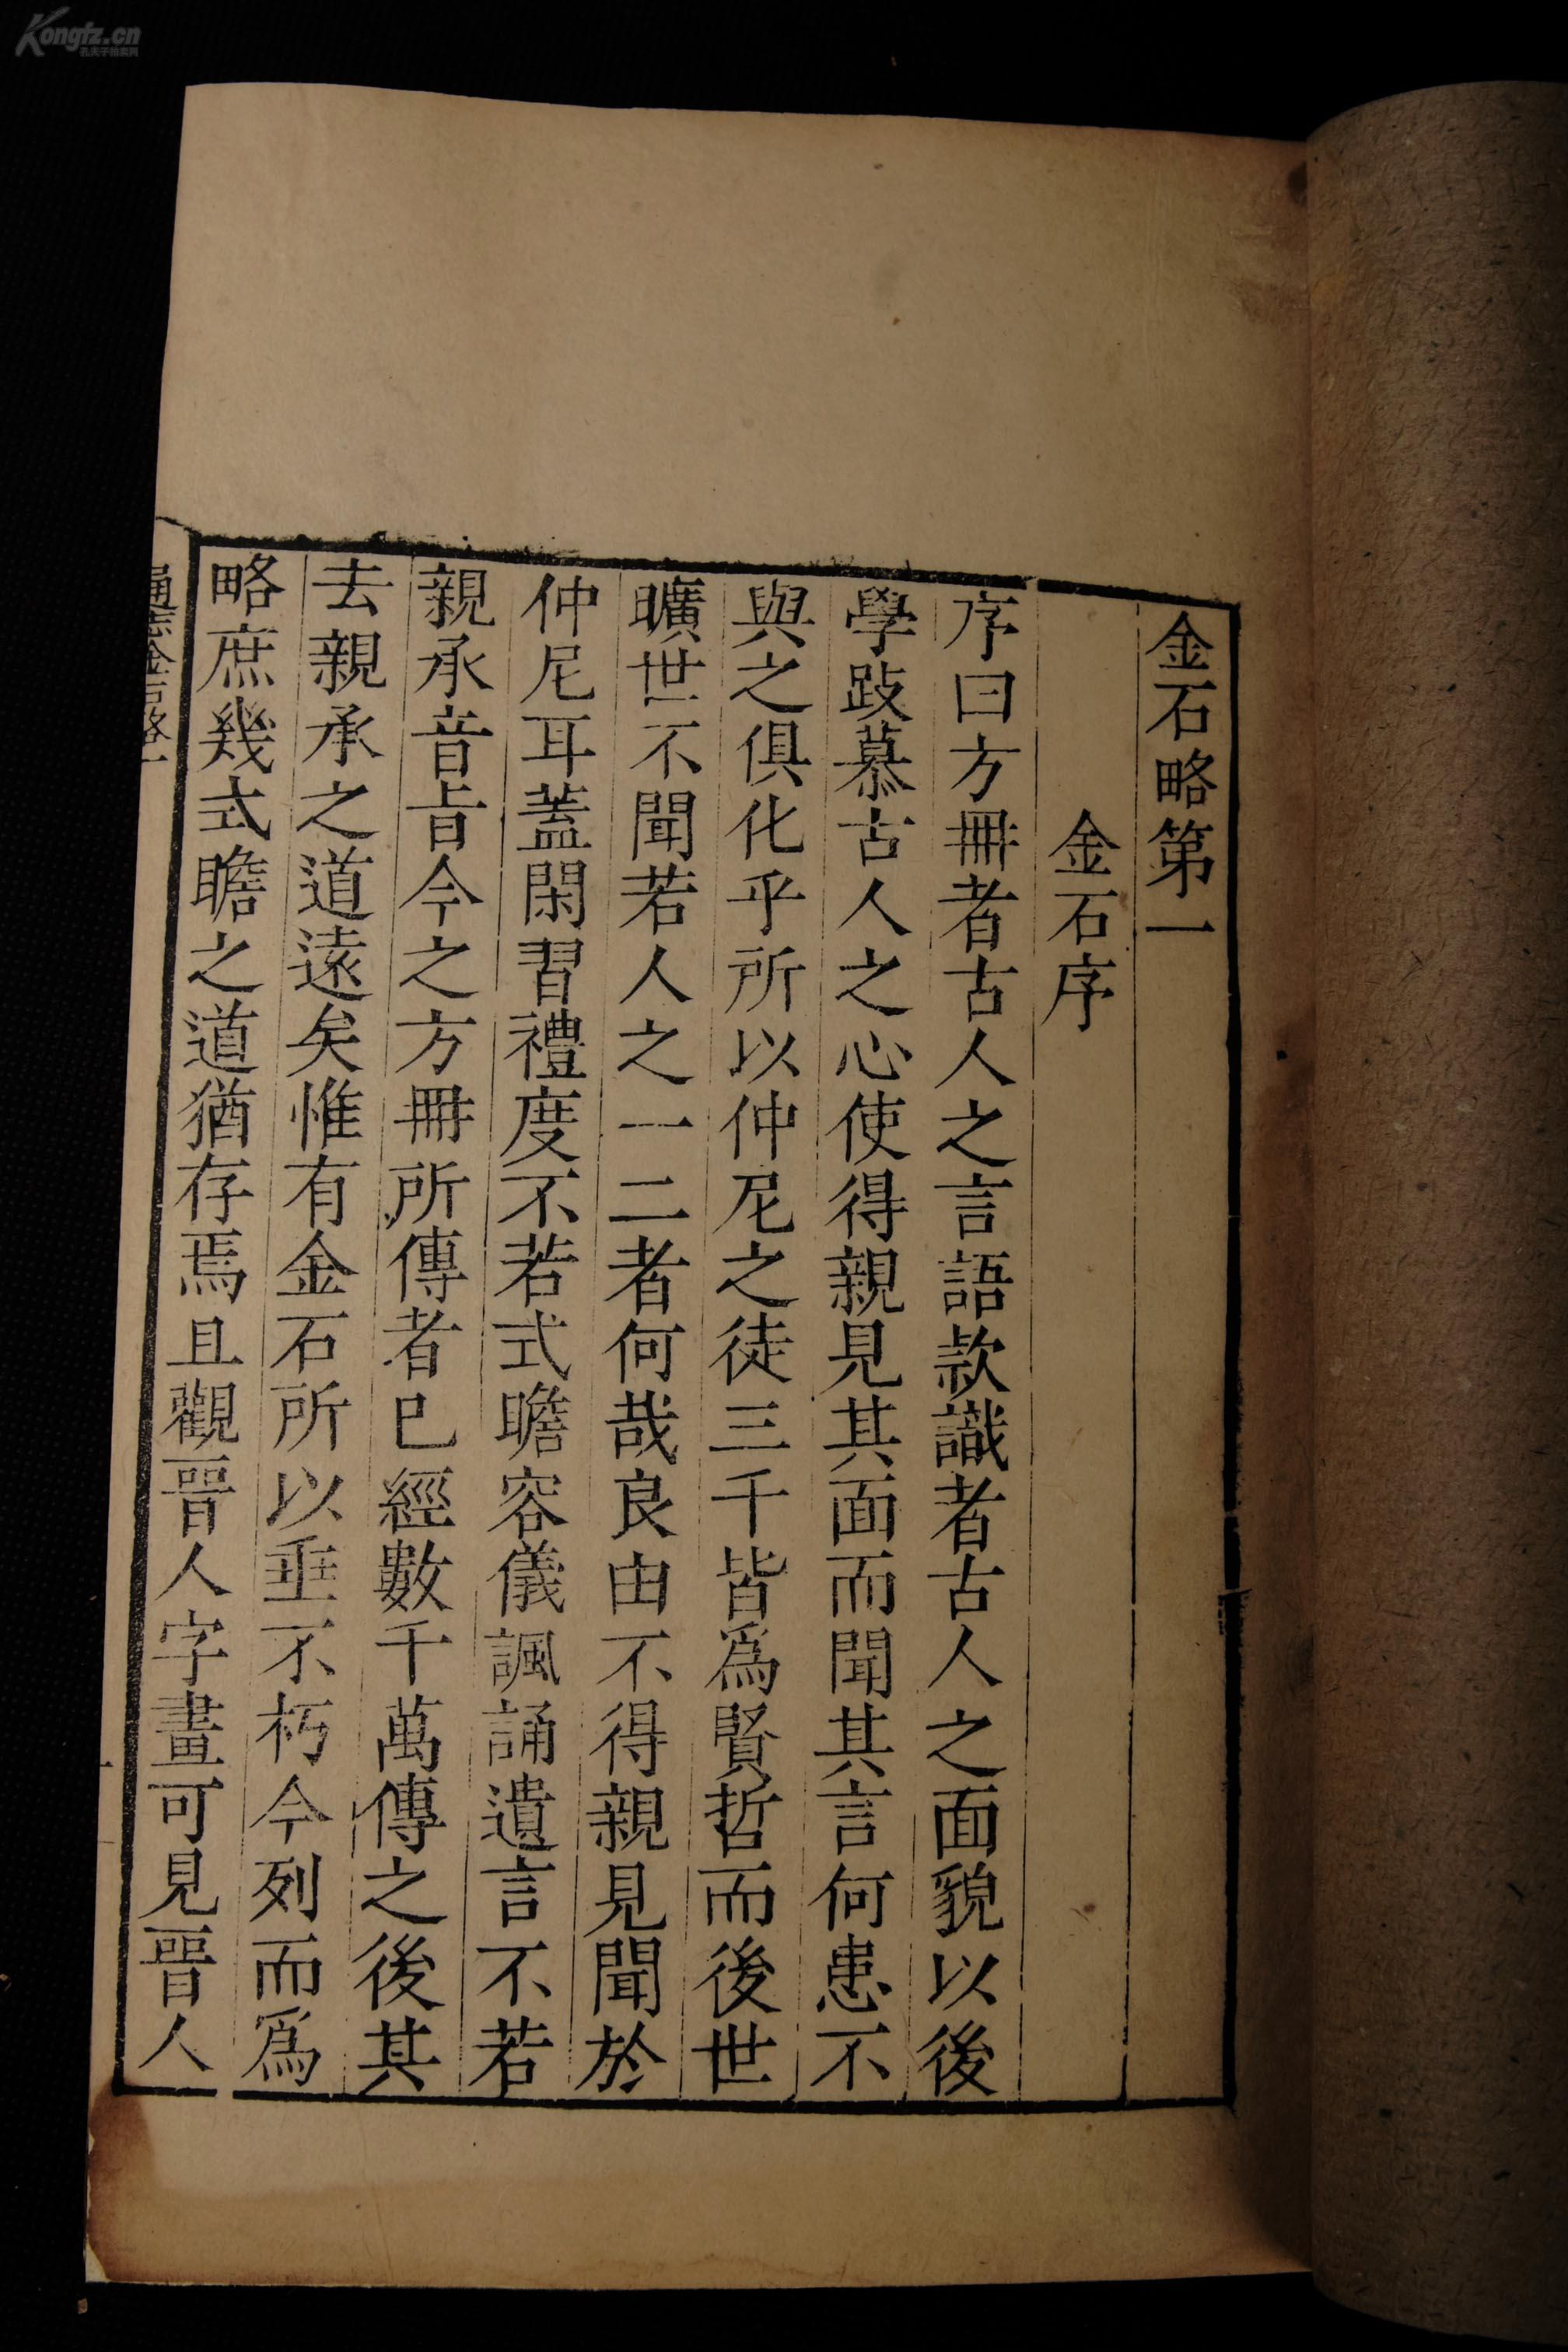 金石略第一
金石序
序曰方冊者古人之言語款識者古人之面貌以後
學跂慕古人之心使得親見其面而聞其言何患不
與之俱化乎所以仲尼之徒三千皆爲賢哲而後世
曠世不聞若人之一二者何哉良由不得親見聞於
仲尼耳蓋閑習禮度不若式瞻容儀諷誦遺言不若
親承音旨今之方冊所傳者已經數千萬傳之後其
去親承之道遠矣惟有金石所以垂不朽今列而爲
略庶幾式瞻之道猶存焉且觀晉人字畫可見晉人
通志金石略一
Kongfz.cn